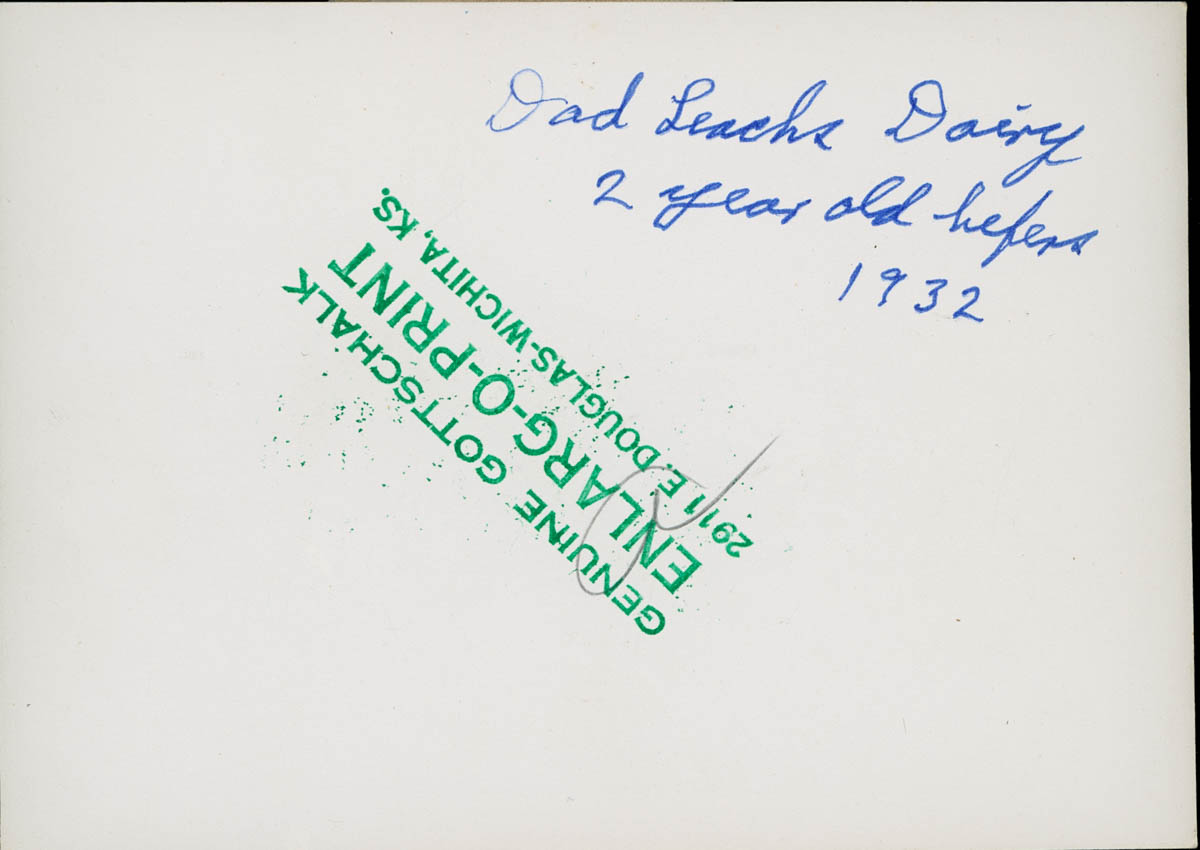 Dad Leachs Dairy
2 year old hefers
1932
GENUINE GOTTSCHALK
ENLARG-O-PRINT
2911 E. DOUGLAS-WICHITA, KS.